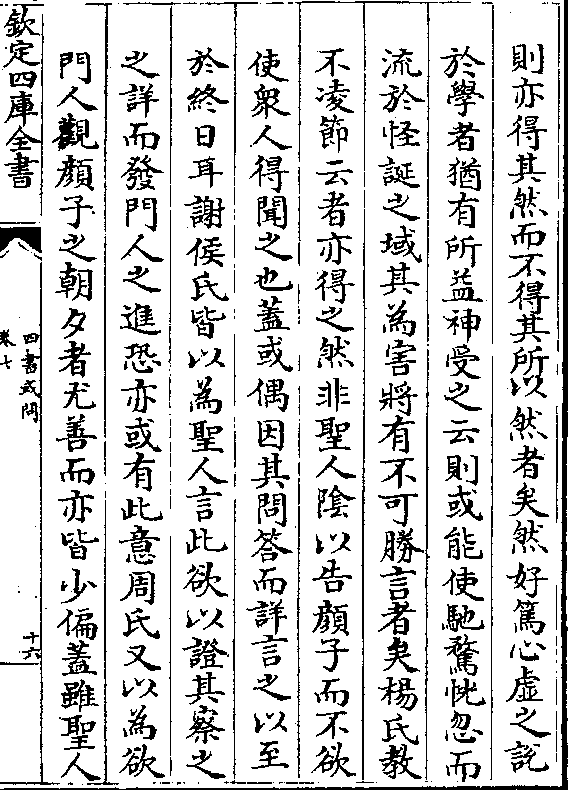 則亦得其然而不得其所以然者矣然好篤心虛之説
於學者猶有所益神受之云則或能使馳騖恍忽而
流於怪誕之域其為害將有不可勝言者矣楊氏教
不凌節云者亦得之然非聖人陰以告顔子而不欲
使衆人得聞之也蓋或偶因其問答而詳言之以至
於終日耳謝侯氏皆以為聖人言此欲以證其察之
之詳而發門人之進恐亦或有此意周氏又以為欲
門人觀顔子之朝夕者尤善而亦皆少偏蓋雖聖人
欽定四庫全書
四書或問
卷七
十六